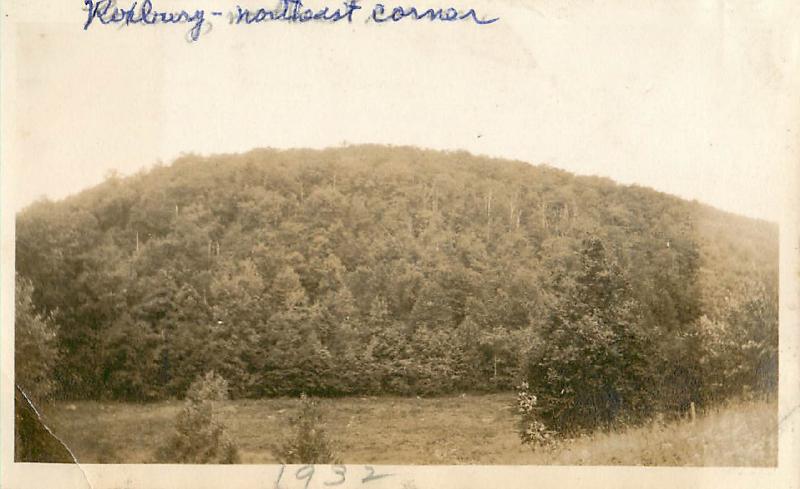 Roxbury - northeast corner
1932